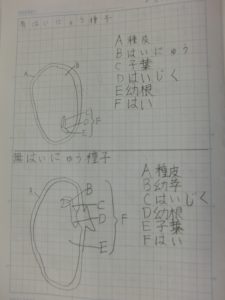 有はいにゅう種子
A
B
C
D
E
F
A 種皮
B はいにゅう
C 子葉
D はいじく
E 幼根
F はい
無はいにゅう種子
A
B
C
D
E
F
A 種皮
B 幼芽
C はいじく
D 幼根
E 子葉
F はい